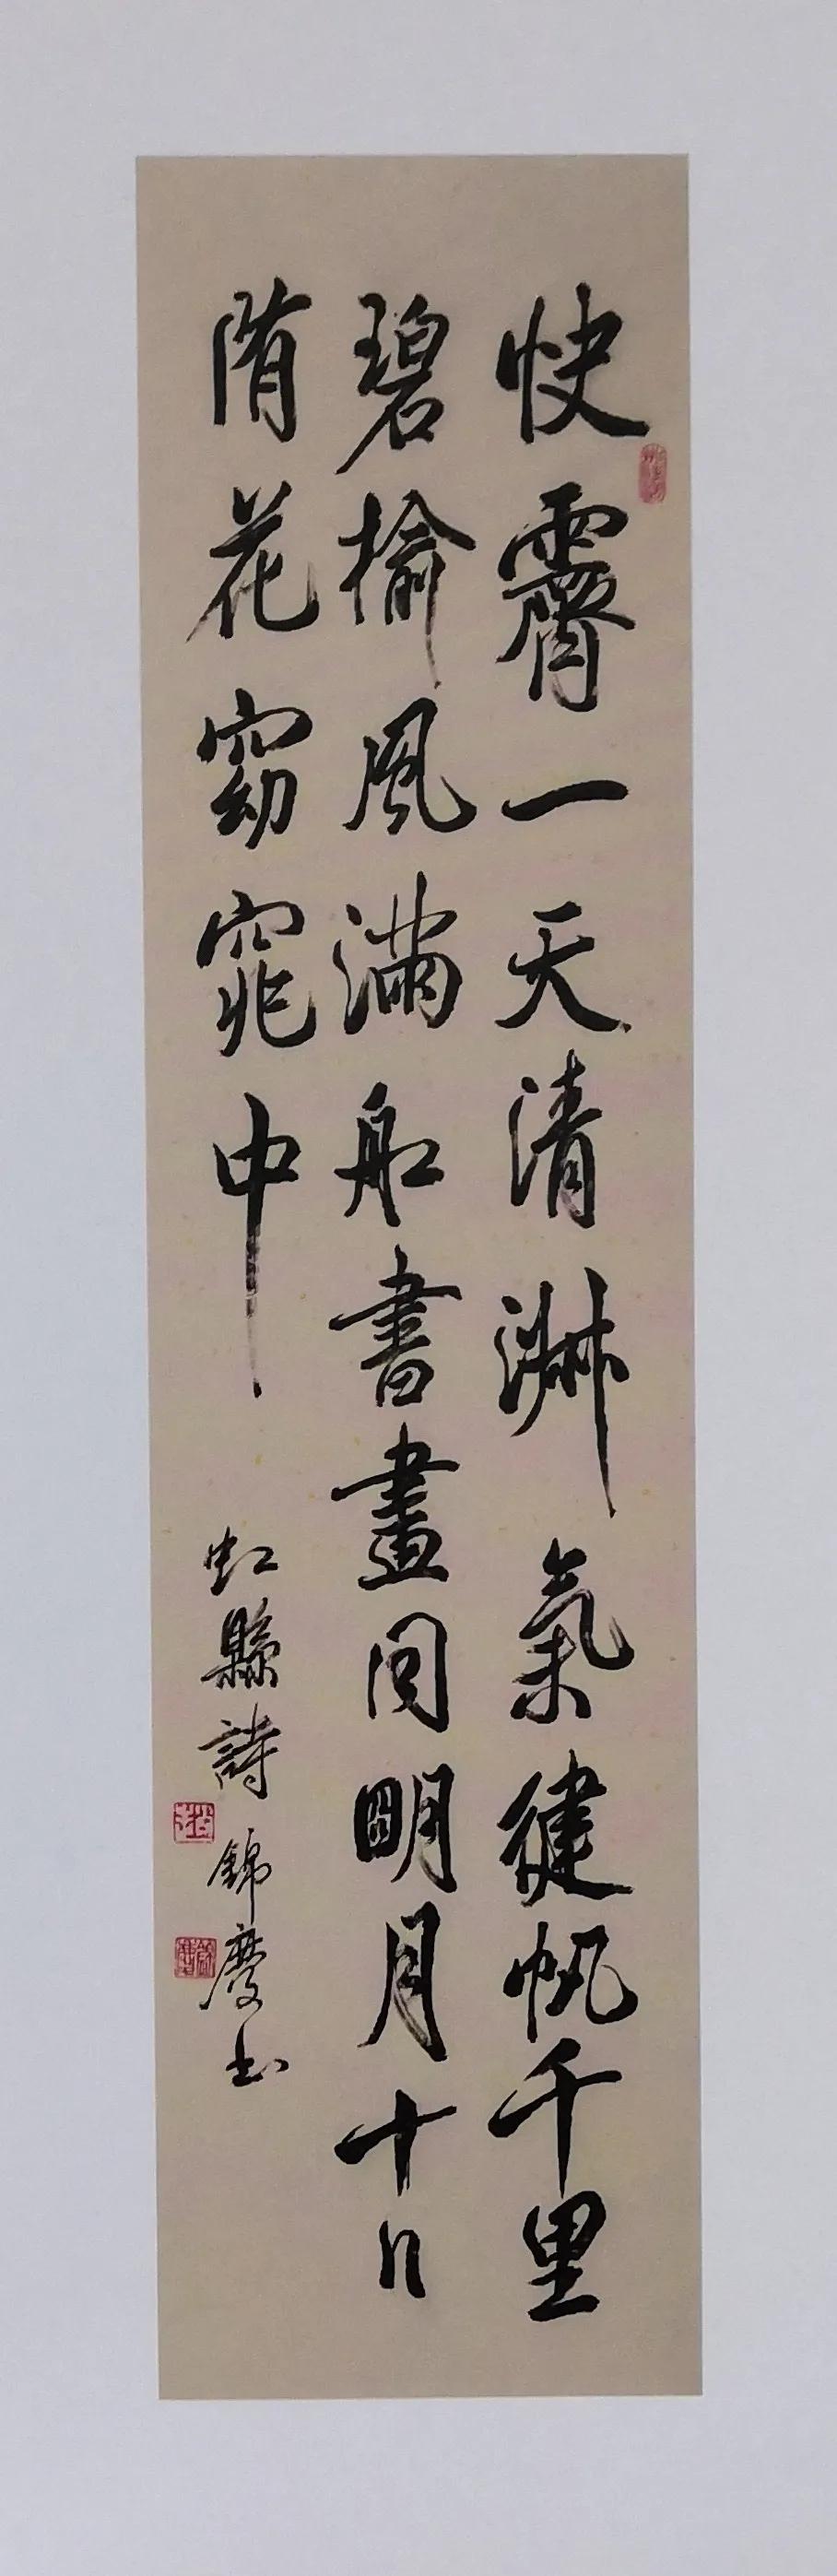 快霽一天清淑氣健帆千里
碧榆風滿船書畫同明月十日
隋花窈窕中
虹縣詩 錦慶書